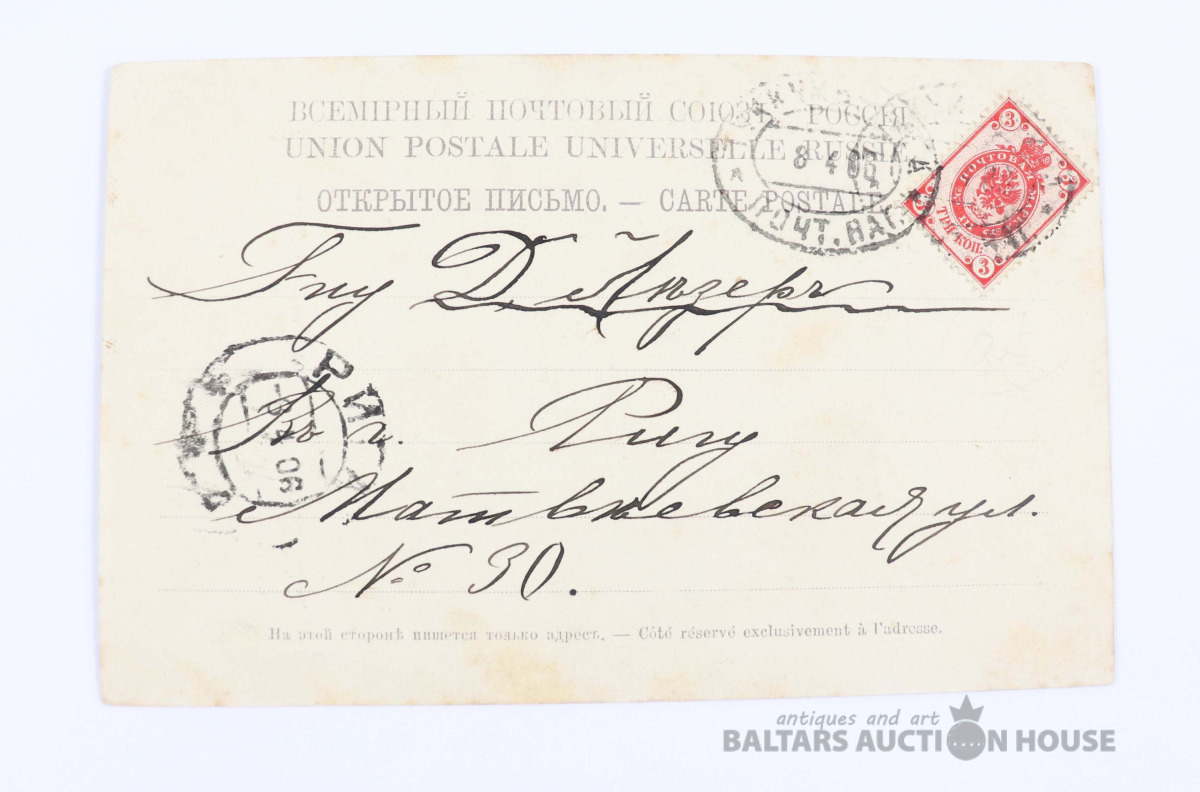 ВСЕМІРНЫЙ ПОЧТОВЫЙ СОЮЗЪ. РОССІЯ.
UNION POSTALE UNIVERSELLE. RUSSIE.
ОТКРЫТОЕ ПИСЬМО. — CARTE POSTALE.
8 4 06
ПОЧТ. ВАГ.
3
3
ПОЧТОВАЯ МАРКА
3
ТРИ КОП.
3
Гну Д
РИГА
06
Въ г. Ригу
Матвѣевская ул.
№ 30.
На этой сторонѣ пишется только адресъ. — Côté réservé exclusivement à l'adresse.
antiques and art
BALTARS AUCTION HOUSE